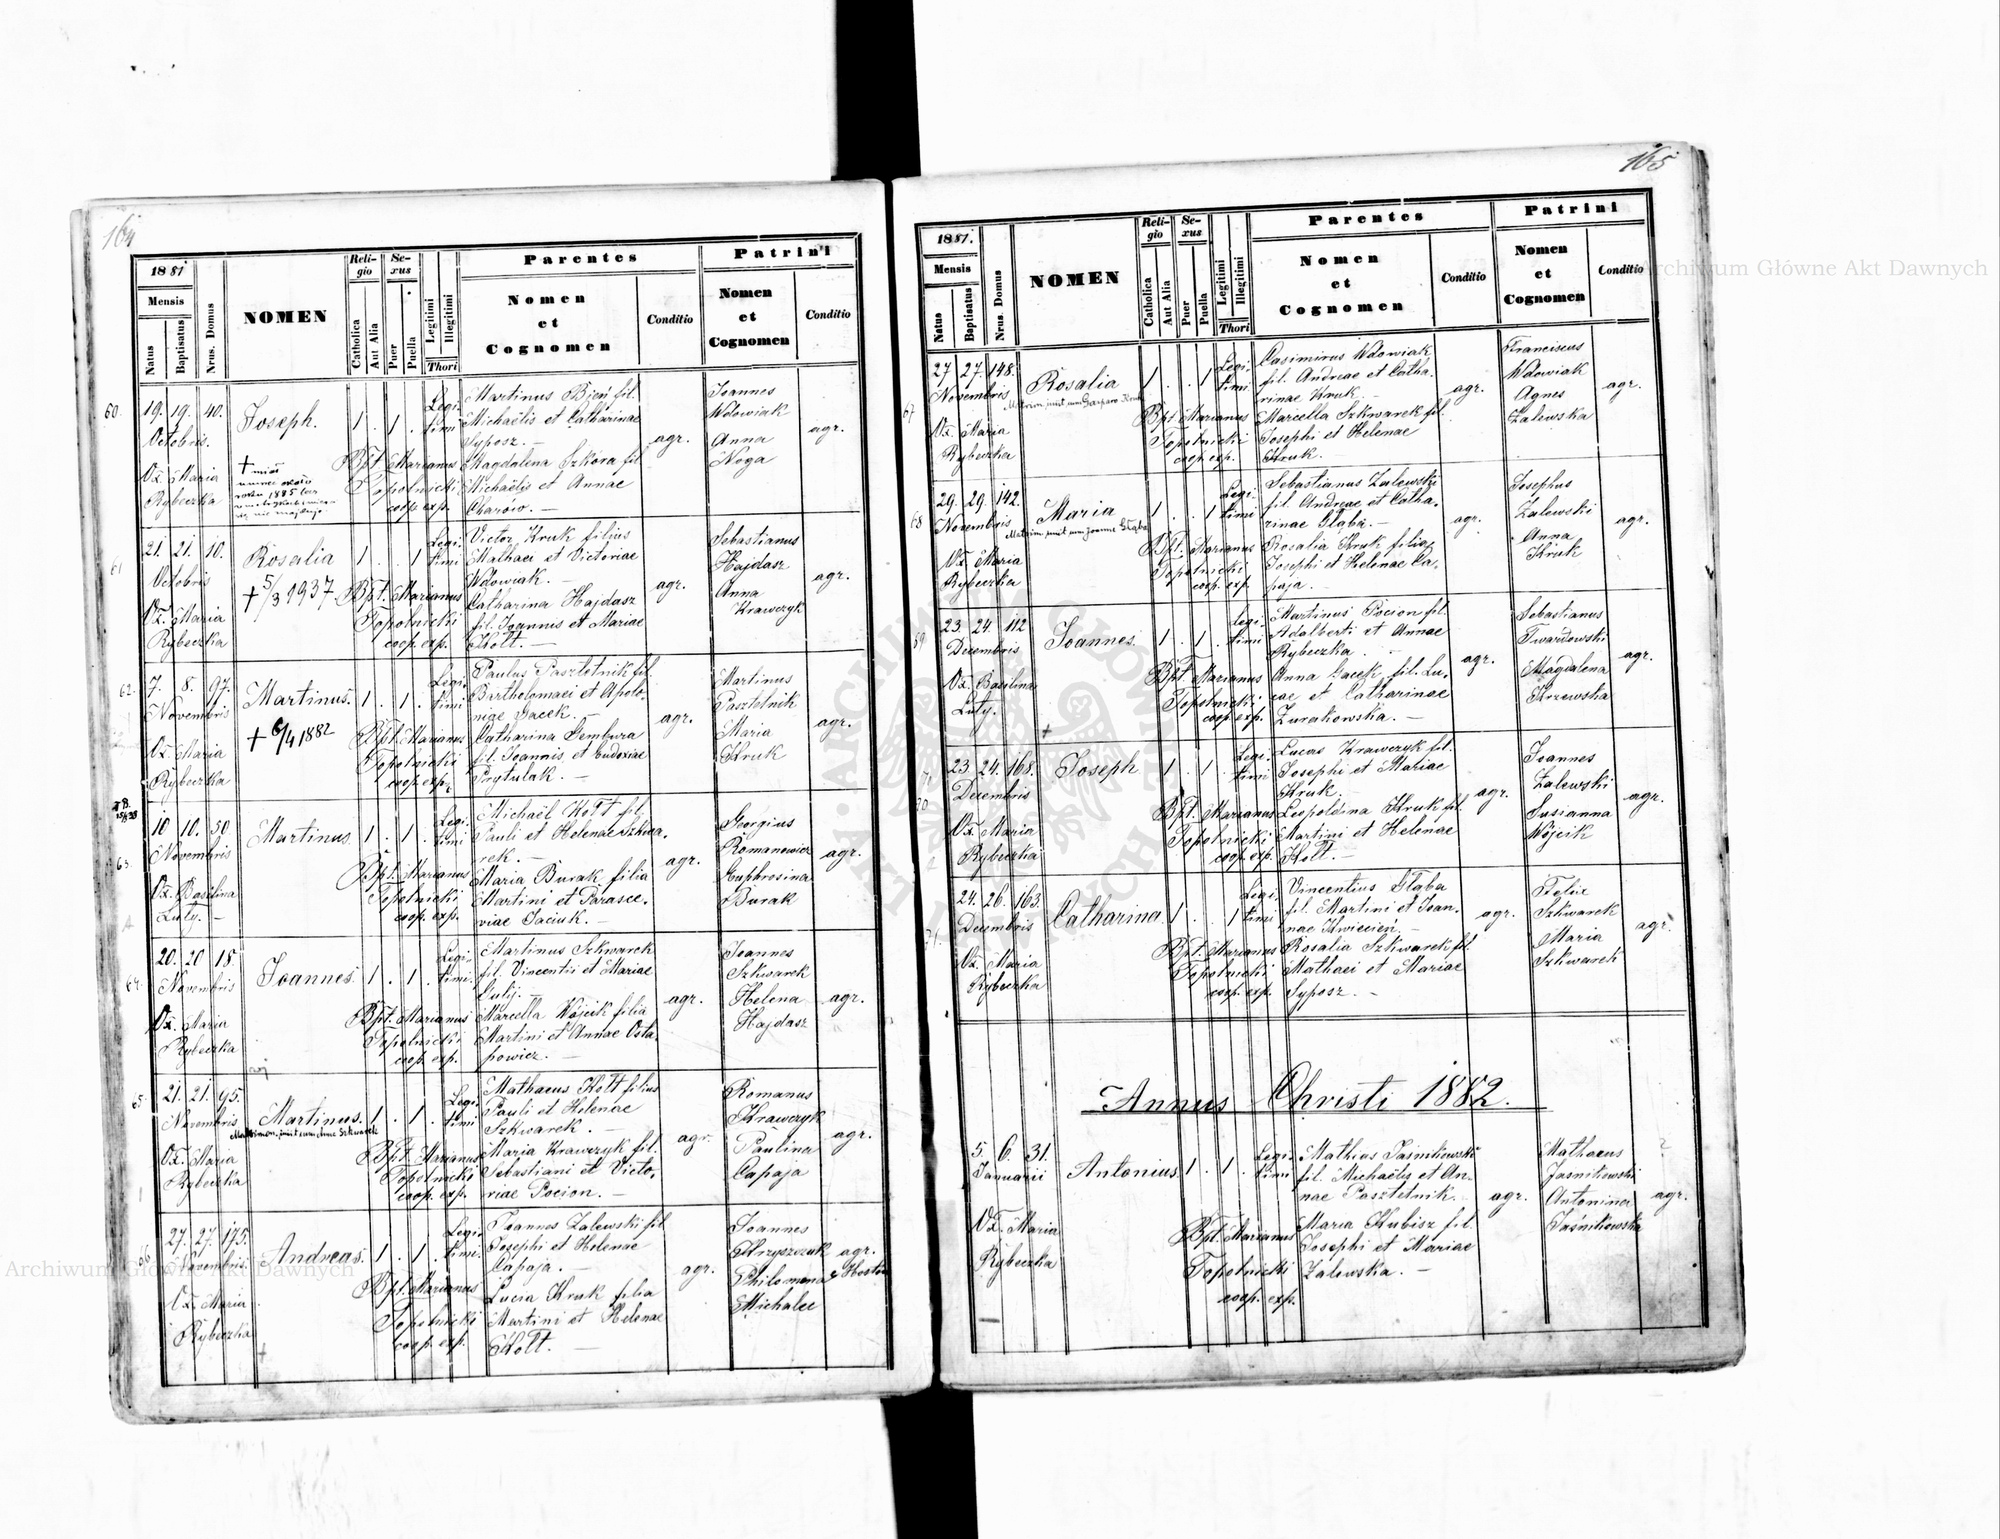 164
1881
Mensis
Natus
Baptisatus
Nrus. Domus
NOMEN
Reli-
gio
Catholica
Aut Alia
Se-
xus
Puer
Puella
Legitimi
Illegitimi
Thori
Parentes
Nomen
et
Cognomen
Conditio
Patrini
Nomen
et
Cognomen
Conditio
60.
19. 19. 40.
Octobris.
Ox. Maria
Rybeczka
Joseph.
1 . 1 .
Legi-
timi
Bpt. Marianus
Topolnicki
coop. exp.
Martinus Bień fil.
Michaëlis et Catharinae
Syposz. —
Magdalena Szkora fil
Michaëlis et Annae
Charów. —
agr.
Joannes
Wdowiak
Anna
Noga
agr.
61
21. 21. 10.
Octobris
Ox. Maria
Rybeczka
Rosalia
+ 5/3 1937
1 . . 1
Legi-
timi
Bpt. Marianus
Topolnicki
coop. exp.
Victor Kruk filius
Mathaei et Victoriae
Wdowiak. —
Catharina Hajdasz
fil. Joannis et Mariae
Kott. —
agr.
Sebastianus
Hajdasz
Anna
Krawczyk
agr.
62.
7. 8. 97.
Novembris
Ox. Maria
Rybeczka
Martinus.
+ 6/4 1882
1 . 1 .
Legi-
timi
Bpt. Marianus
Topolnicki
coop. exp.
Paulus Pasztelnik fil
Bartholomaei et Apolo-
niae Jacek. —
Catharina Gembura
fil. Joannis et Eudoxiae
Prytulak. —
agr.
Martinus
Pasztelnik
Maria
Kruk
agr.
63.
10 10. 50
Novembris
Ox. Basilina
Luty. —
Martinus
1 . 1 .
Legi-
timi
Bpt. Marianus
Topolnicki
coop. exp.
Michaël Kott fil
Pauli et Helenae Szkwa-
rek. —
Maria Burak filia
Martini et Parasce-
viae Jaciuk. —
agr.
Georgius
Romanowicz
Euphrosina
Burak
agr.
64.
20. 20 18.
Novembris
Ox. Maria
Rybeczka
Joannes
1 . 1 .
Legi-
timi.
Bpt. Marianus
Topolnicki
coop. exp.
Martinus Szkwarek
fil. Vincentii et Mariae
Gulij. —
Marcella Wójcik filia
Martini et Annae Osta-
powicz. —
agr.
Joannes
Szkwarek
Helena
Hajdasz
agr.
65.
21. 21. 95.
Novembris
Ox. Maria
Rybeczka
Martinus.
1 . 1 .
Legi-
timi
Bpt. Marianus
Topolnicki
coop. exp.
Mathaeus Kott filius
Pauli et Helenae
Szkwarek. —
Maria Krawczyk fil.
Sebastiani et Victo-
riae Pocion. —
agr.
Romanus
Krawczyk
Paulina
Capaja
agr.
66
27. 27. 175.
Novembris.
Ox. Maria
Rybeczka
Andreas.
1 . 1 .
Legi-
timi.
Bpt. Marianus
Topolnicki
coop. exp.
Joannes Zalewski fil.
Josephi et Helenae
Capaja. —
Lucia Kruk filia
Martini et Helenae
Kott. —
agr.
Joannes
Krzyszczuk
Philomena
Michalec
agr.
165
1881.
Mensis
Natus
Baptisatus
Nrus. Domus
NOMEN
Reli-
gio
Catholica
Aut Alia
Se-
xus
Puer
Puella
Legitimi
Illegitimi
Thori
Parentes
Nomen
et
Cognomen
Conditio
Patrini
Nomen
et
Cognomen
Conditio
67
27 27. 148.
Novembris
Ox. Maria
Rybeczka
Rosalia
1 . . 1
Legi-
timi
Bpt. Marianus
Topolnicki
coop. exp.
Casimirus Wdowiak
fil. Andreae et Catha-
rinae Kruk —
Marcella Szkwarek fil.
Josephi et Helenae
Kruk. —
agr.
Franciscus
Wdowiak
Agnes
Zalewska
agr.
68
29. 29. 142.
Novembris
Ox. Maria
Rybeczka
Maria
Matrim. junxit cum Joanne Głąba
1 . . 1
Legi-
timi
Bpt. Marianus
Topolnicki
coop. exp.
Sebastianus Zalewski
fil. Andreae et Catha-
rinae Głąba. —
Rosalia Kruk filia
Josephi et Helenae Ca-
paja. —
agr.
Josephus
Zalewski
Anna
Kruk
agr.
23. 24. 112
Decembris
Ox. Basilina
Luty.
Joannes.
1 . 1 .
Legi-
timi
Bpt. Marianus
Topolnicki
coop. exp.
Martinus Pocion fil.
Adalberti et Annae
Rybeczka . —
Anna Jacek fil. Lu-
cae et Catharinae
Żurakowska. —
agr.
Sebastianus
Twardowski
Magdalena
Krzewska
agr.
70
23. 24. 168.
Decembris
Ox. Maria
Rybeczka
+
Joseph
1 . 1 .
Legi-
timi
Bpt. Marianus
Topolnicki
coop. exp.
Lucas Krawczyk fil.
Josephi et Mariae
Kruk. —
Leopoldina Kruk fil.
Martini et Helenae
Kott. —
agr.
Joannes
Zalewski
Susianna
Wójcik
agr.
71.
24. 26. 163.
Decembris
Ox. Maria
Rybeczka
Catharina
1 . . 1
Legi-
timi
Bpt. Marianus
Topolnicki
coop. exp.
Vincentius Głąba
fil. Martini et Joan-
nae Kwiecien. —
Rosalia Szkwarek fil
Mathaei et Mariae
Syposz. —
agr.
Felix
Szkwarek
Maria
Szkwarek
agr.
Annus Christi 1882.
5. 6. 31.
Januarii
Ox. Maria
Rybeczka
Antonius
1 . 1 .
Legi-
timi
Bpt. Marianus
Topolnicki
coop. exp.
Mathias Jaśnikowski
fil. Michaëlis et An-
nae Pasztelnik.
Maria Kubisz fil.
Josephi et Mariae
Zalewska. —
agr.
Mathaeus
Jaśnikowski
Antonina
Jaśnikowska
agr.
Archiwum Główne Akt Dawnych
Archiwum Główne Akt Dawnych